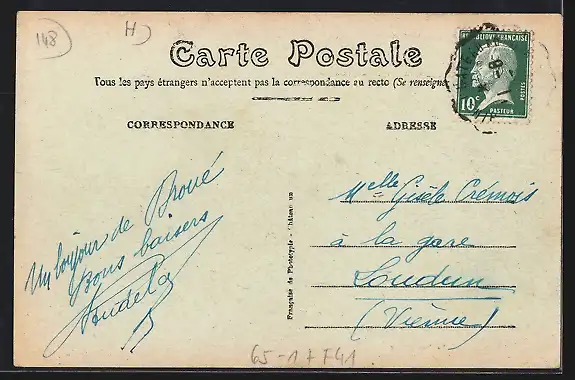 148
H
Carte Postale
Tous les pays étrangers n'acceptent pas la correspondance au recto (Se renseigne
RÉPUBLIQUE FRANÇAISE
POSTES
10c
PASTEUR
CORRESPONDANCE
ADRESSE
Un bonjour de Broué
Bons baisers
Melle Gisèle Crémois
à la gare
Loudun
(Vienne)
Française de Phototypie - Château un
65-17741